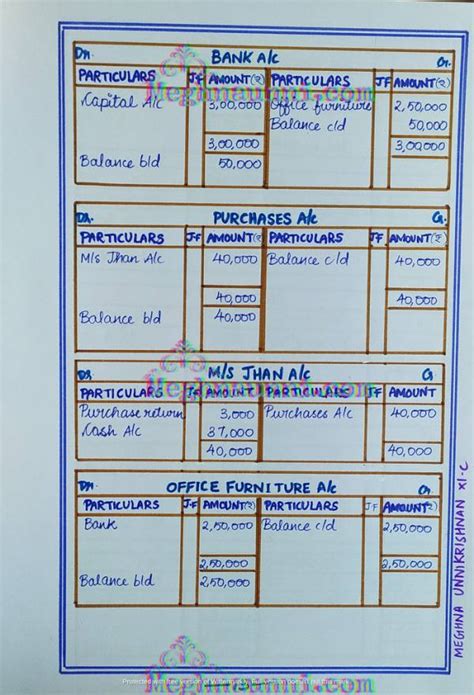 Dr. BANK A/c Cr.
PARTICULARS J.F AMOUNT(₹) PARTICULARS J.F AMOUNT(₹)
Capital A/c 3,00,000 Office furniture 2,50,000
Balance c/d 50,000
3,00,000 3,00,000
Balance b/d 50,000
Meghnaunni.com
Dr. PURCHASES A/c Cr.
PARTICULARS J.F AMOUNT(₹) PARTICULARS J.F AMOUNT(₹)
M/s Jhan A/c 40,000 Balance c/d 40,000
40,000 40,000
Balance b/d 40,000
Dr. M/S JHAN A/c Cr
PARTICULARS J.F AMOUNT PARTICULARS J.F AMOUNT
Meghnaunni.com
Purchase return 3,000 Purchases A/c 40,000
Cash A/c 37,000
40,000 40,000
Dr. OFFICE FURNITURE A/c Cr.
PARTICULARS J.F AMOUNT(₹) PARTICULARS J.F AMOUNT(₹)
Bank 2,50,000 Balance c/d 2,50,000
2,50,000 2,50,000
Balance b/d 2,50,000
MEGHNA UNNIKRISHNAN XI-C
Meghnaunni.com
Protected with free version of Watermarkly. Full version doesn't put this mark.